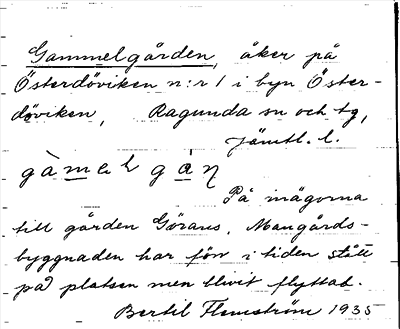 Gammelgården, åker på
Österdöviken n:r 1 i byn Öster-
döviken, Ragunda sn och tg,
Jämtl. l.
gàmeh gán
På inägorna
till gården Görans. Mangårds-
byggnaden har förr i tiden stått
på platsen men blivit flyttad.
Bertil Flemström 1935